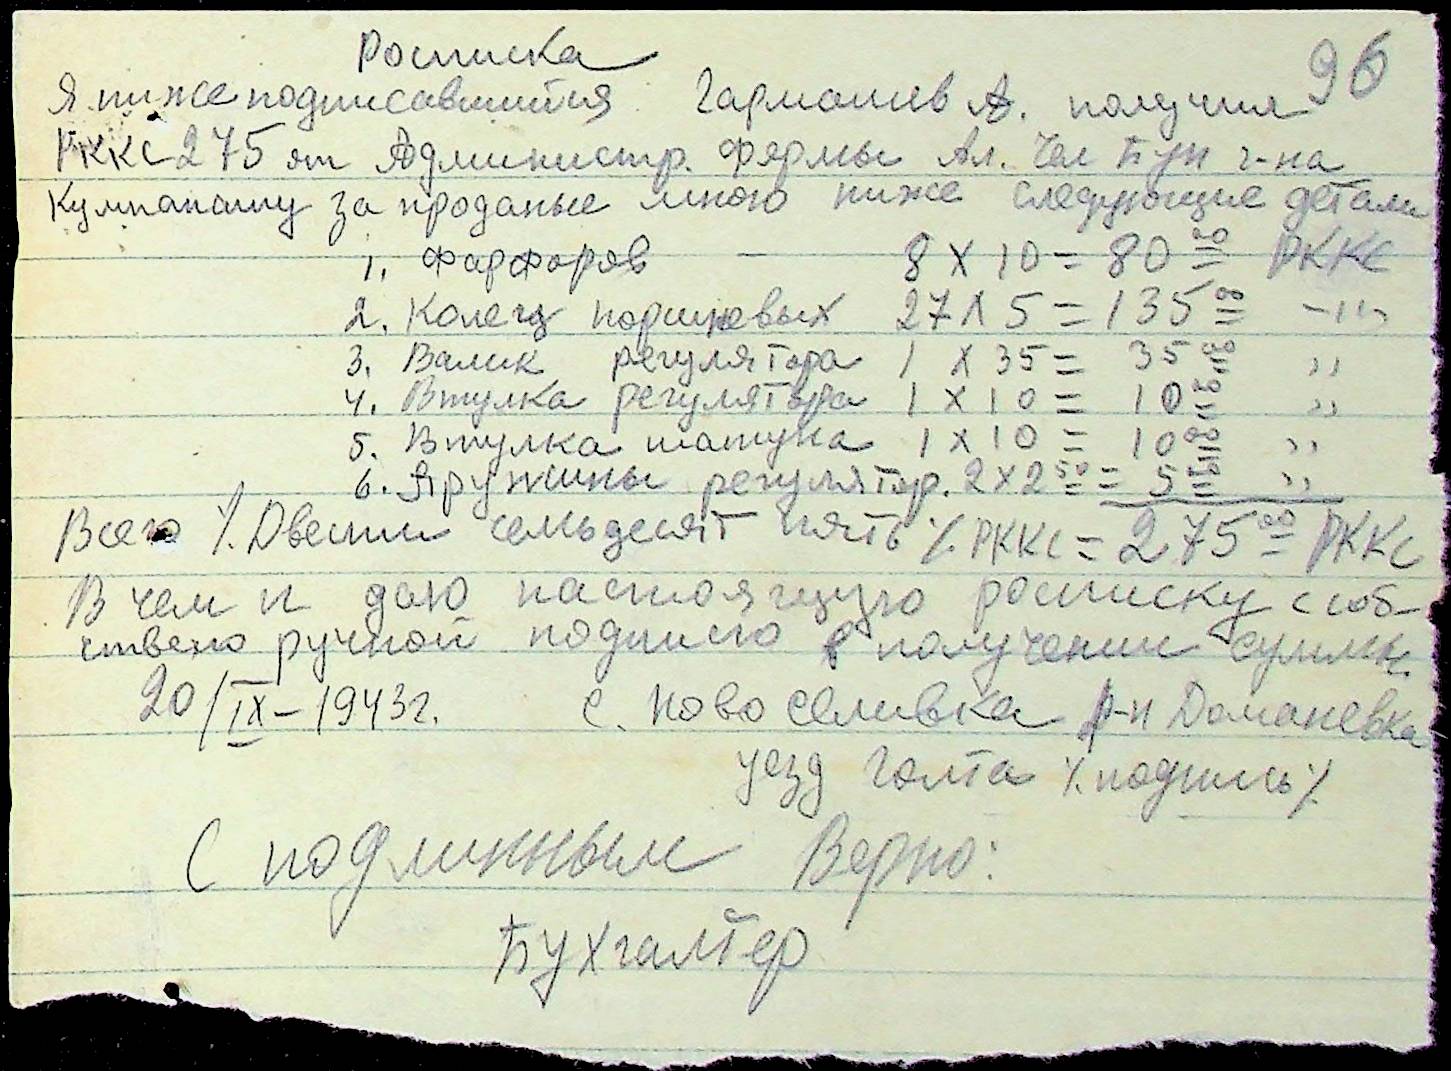 Росписка
96
Я ниже подписавшийся Гармашев А. получил
РККС 275 от Администр. фермы Ал. Чел Бун г-на
Кумпанашу за проданые мною ниже следующие детали
1. Фарфоров — 8 х 10 = 80 00 РККС
2. Колец поршневых 27 х 5 = 135 00 -"-
3. Валик регулятора 1 х 35 = 35 00 "
4. Втулка регулятора 1 х 10 = 10 00 "
5. Втулка шатуна 1 х 10 = 10 00 "
6. Пружины регулятор. 2 х 2 50 = 5 00 "
Всего /. Двести семьдесят пять /. РККС = 275 00 РККС
В чем и даю настоящую росписку с соб-
ствено ручной подписю в получении суммы
20/IX – 1943 г. с. Ново Селивка р-н Доманевка
уезд Голта /. подпись /.
С подлинным Верно:
Бухгалтер